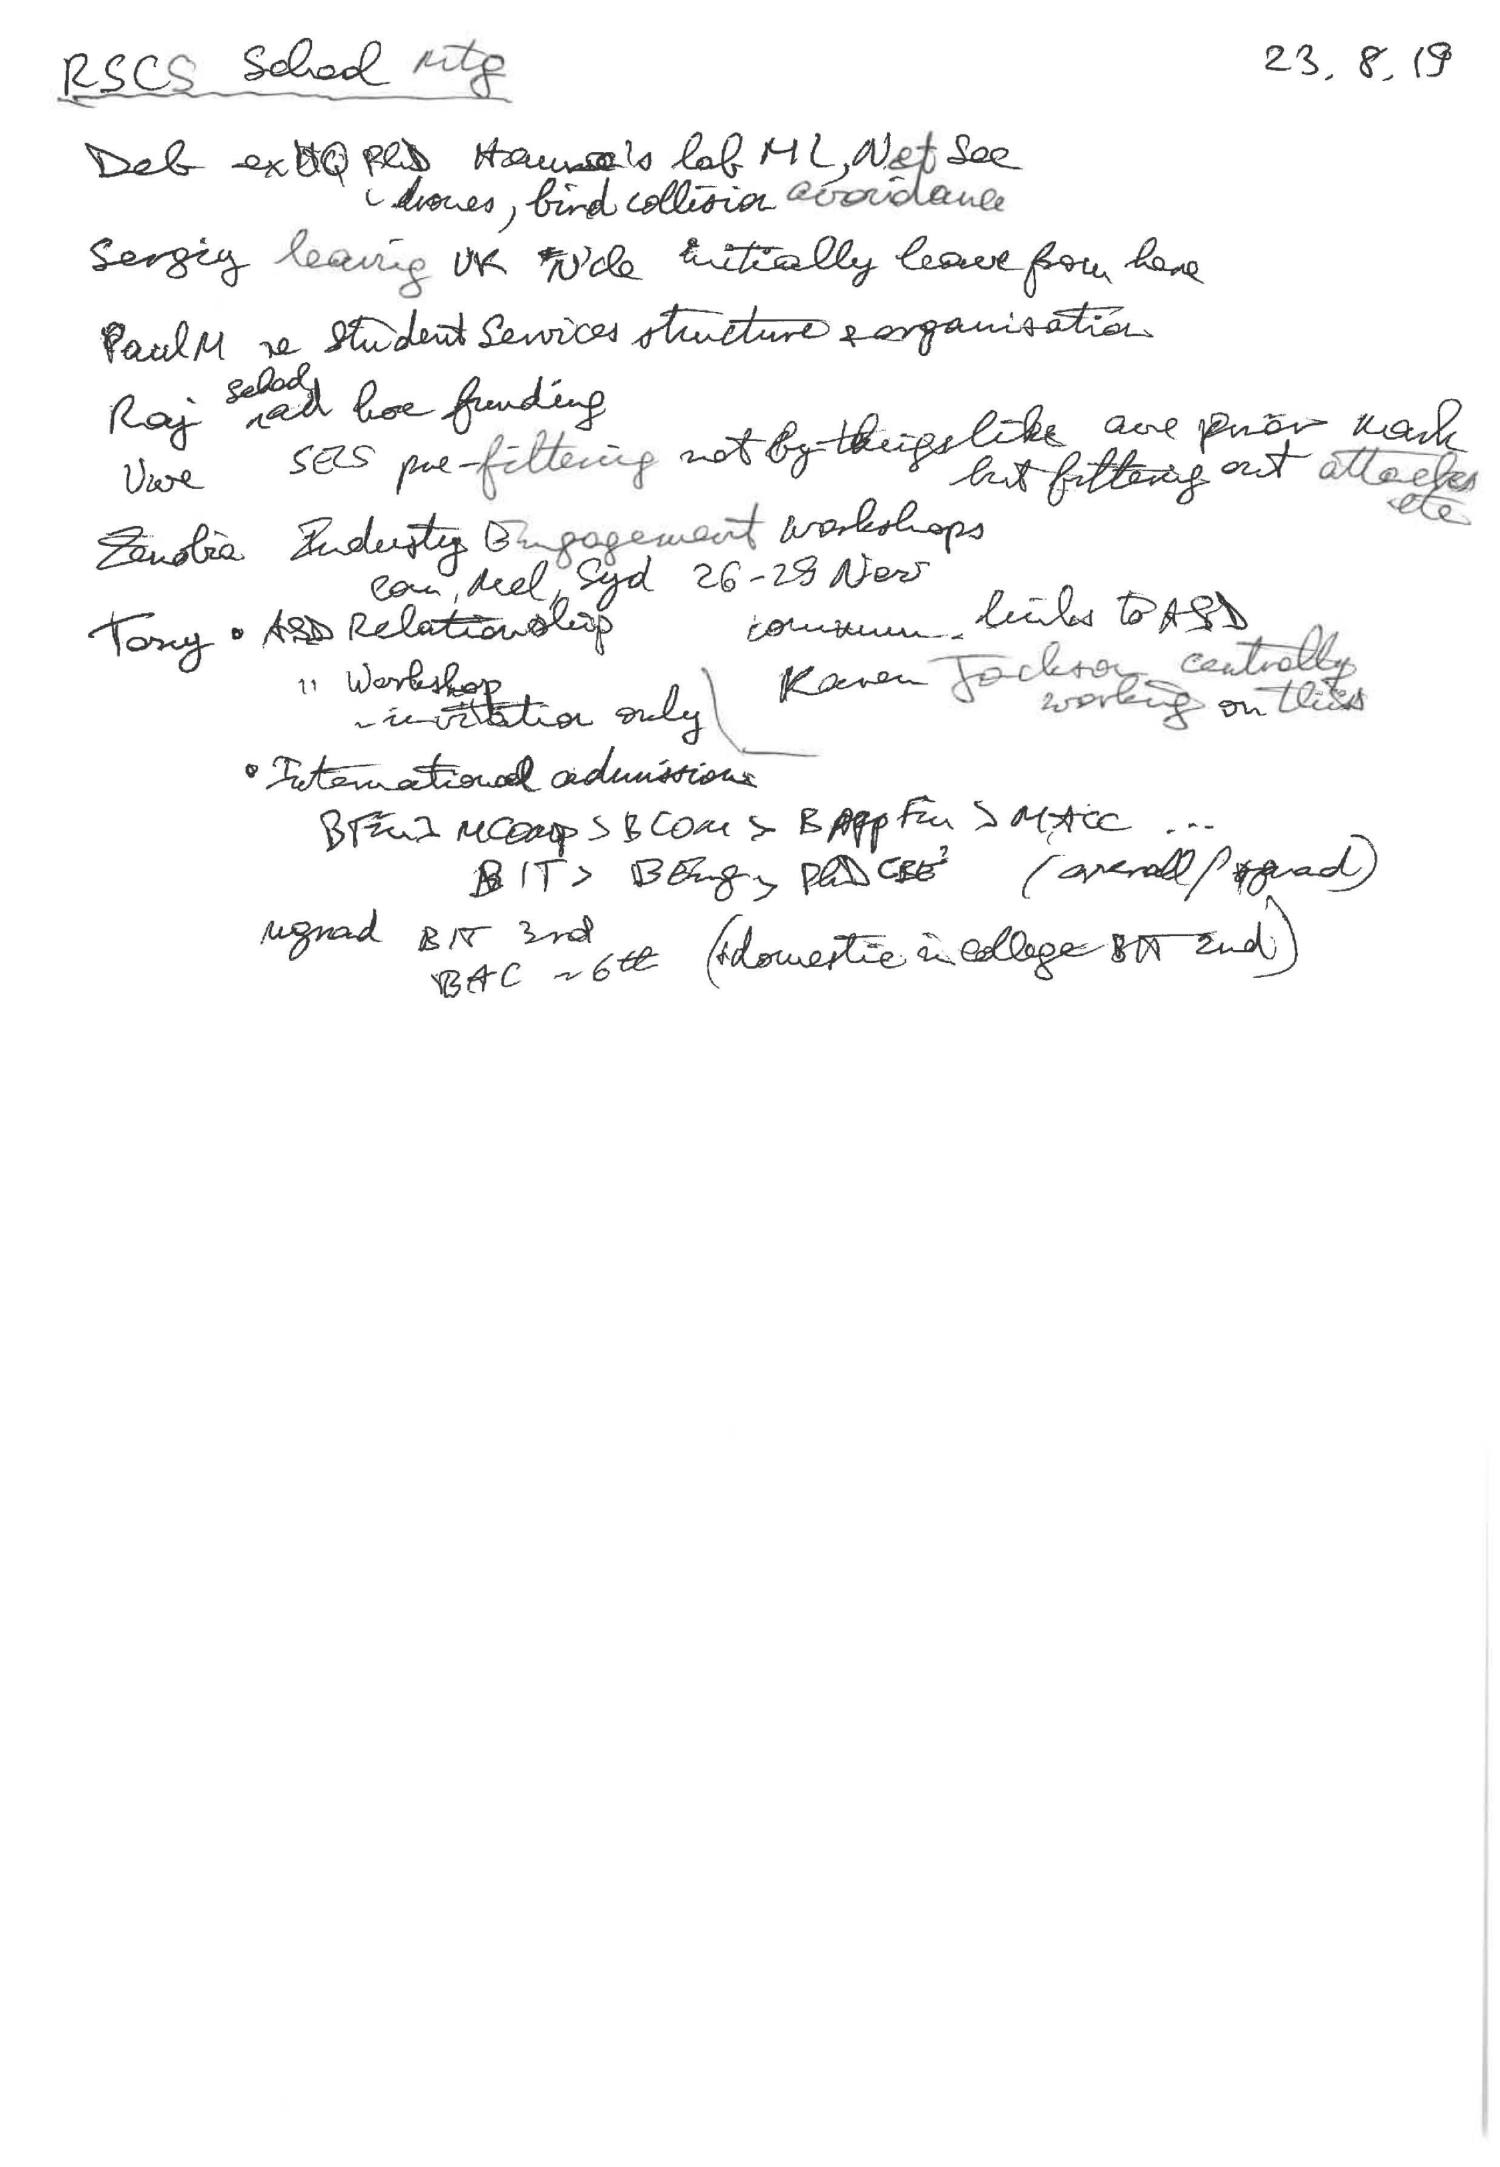 RSCS School Mtg 23.8.19
Deb ex UQ PhD Hanna's lab ML, Net Sec
drones, bird collision avoidance
Sergiy leaving UK N'cle initially leave from here
Paul M re Student Services structure & organisation
Raj school ad hoc funding
Uwe SELS pre-filtering not by things like ave prior mark
but filtering out attacks
etc
Zenobia Industry Engagement workshops
Can, Mel, Syd 26-29 Nov
Tony • ASD Relationship commun. links to ASD
" Workshop Karen Jackson centrally
- invitation only working on this
• International admissions
BFin > MComp > BCom > BAppFin > MAcc ...
BIT > BEng > PhD CBE? (overall/ugrad)
ugrad BIT 3rd
BAC ~ 6th (+domestic in college BIT 2nd)